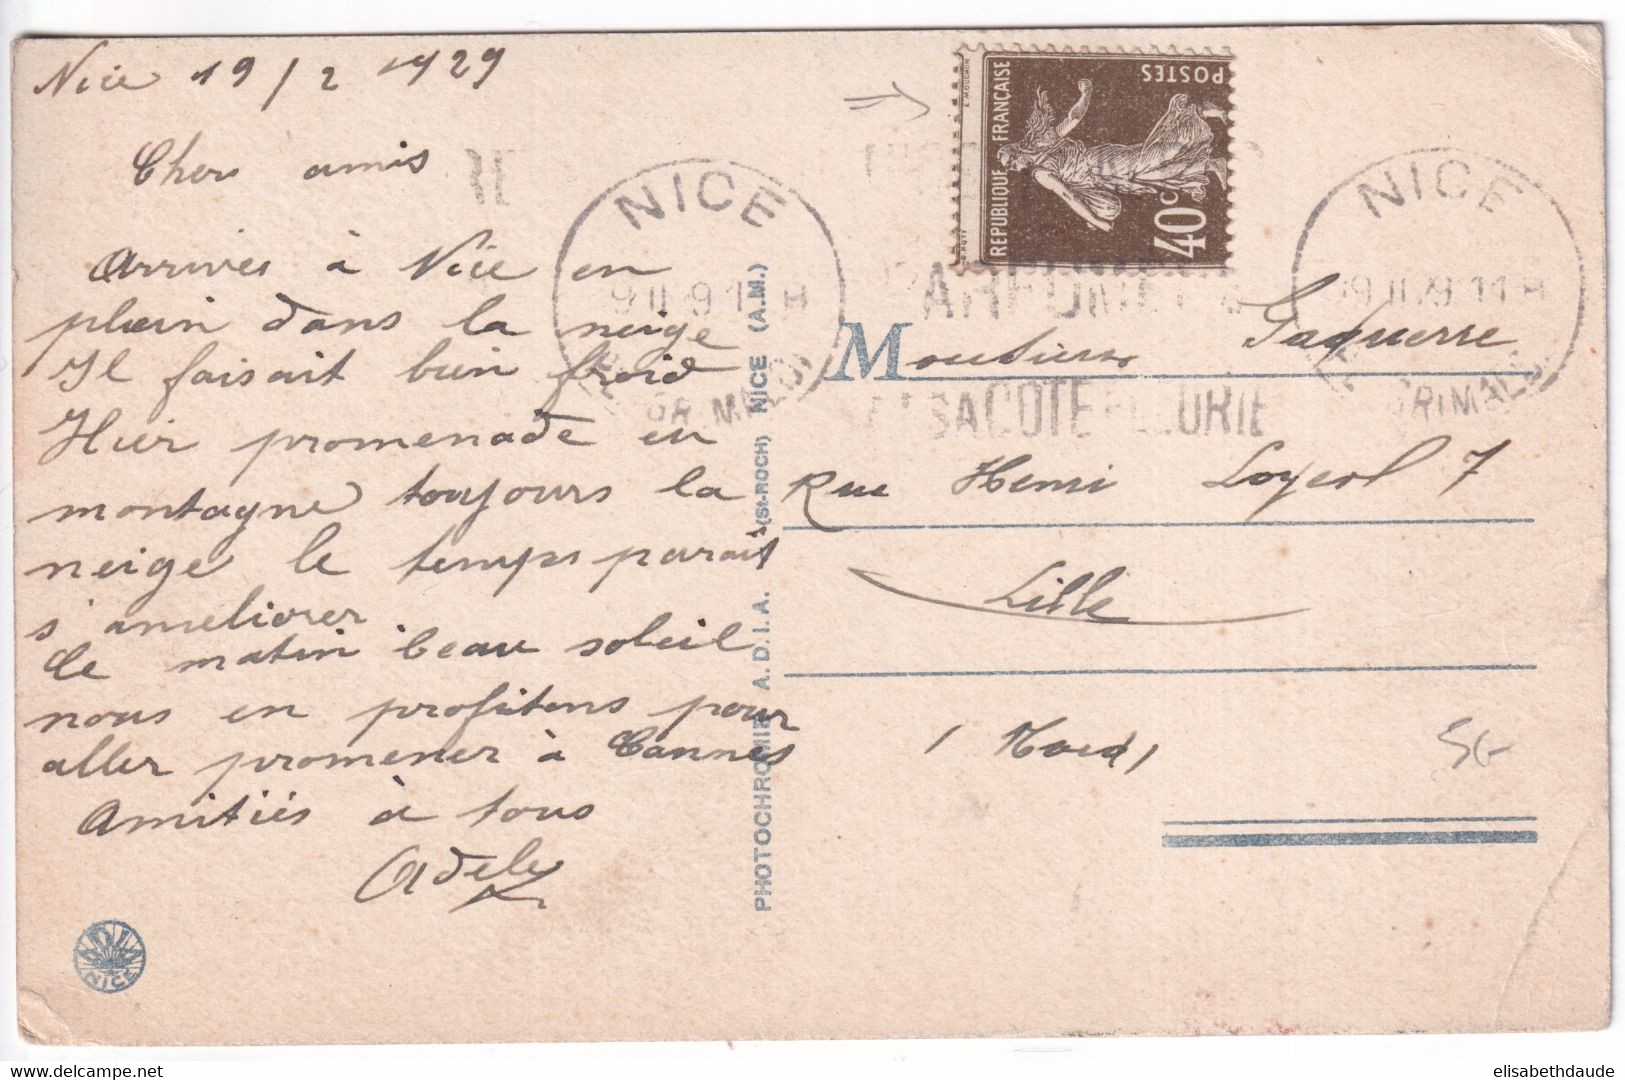 Nice 19/2 1929
Cher amis
Arrivés à Nice en
plein dans la neige
Il faisait bien froid
Hier promenade en
montagne toujours la
neige le temps parait
s'ameliorer
Ce matin beau soleil
nous en profitons pour
aller promener à Cannes
Amitiés à tous
Adele
ADIA
NICE
PHOTOCHROMIE A.D.I.A. (St-ROCH) NICE (A.M.)
REPUBLIQUE FRANÇAISE
POSTES
40c
E. MOUCHON
NICE
GRIMALDI
PARFUMEE
SA COTE FLEURIE
NICE
19 II 29 11 H
GRIMALDI
Monsieur
Rue Henri Loyerol 7
Lille
(Nord)
SG
elisabethdaude